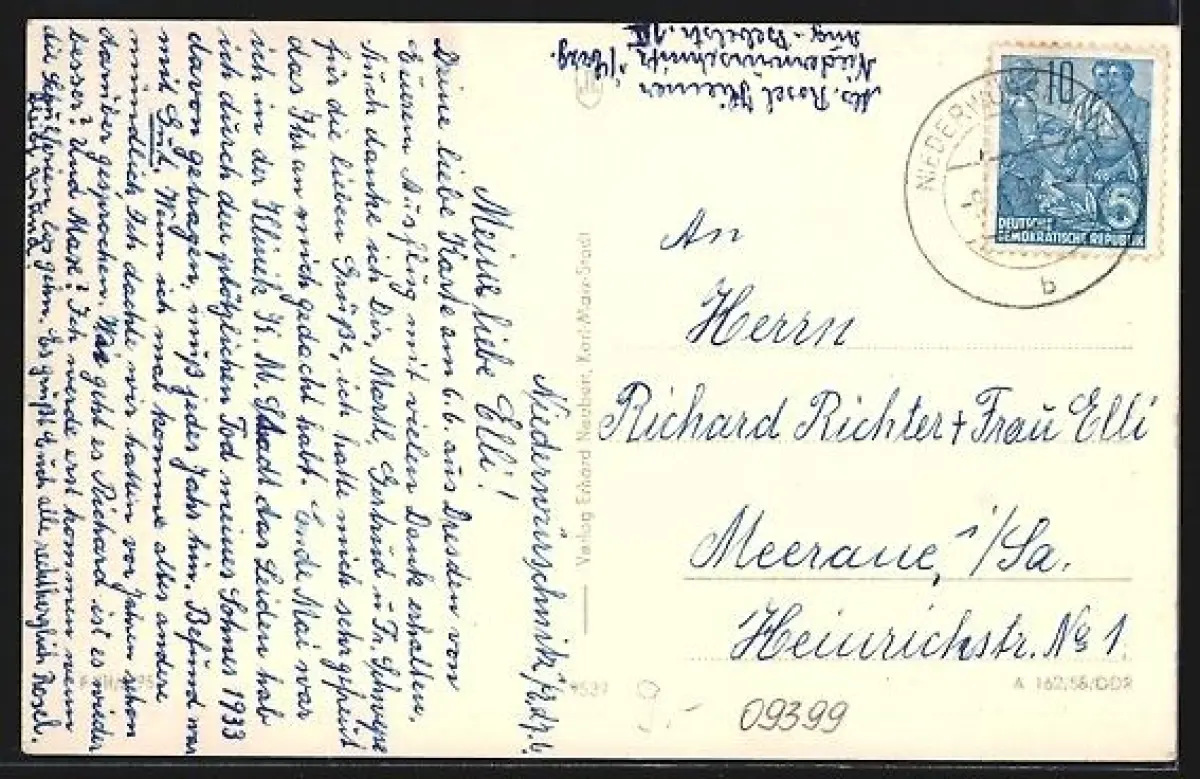 Niederwürschnitz,
Meine liebe Elli!
Deine liebe Karte am 6.6. aus Dresden von
Euerem Ausflug mit vielen Dank erhalten,
Auch danke ich Dir, Martl, Gertrud u. Fr. Schwepe
für die lieben Grüße, ich hatte mich sehr gefreut
das Ihr an mich gedacht habt. Ende Mai war
ich in der Klinik K. M. Stadt das Leiden hab
ich durch den plötzlichen Tod meines Sohnes 1933
davon getragen, muß jedes Jahr hin. Befund war
mit Gut. Wenn ich mal komme alles andere
mündlich. Ich dachte wir hatten vor Jahren schon
darüber gesprochen. Wie geht es Richard ist es wieder
besser? Und Maxe? Ich werde erst kommen wenn
die Schulferien los gehn. Es grüßt Euch alle recht herzlich Rosel.
Bleibt gesund!
Abs. Rosel
Niederwürschnitz /Erzg.
Aug.-Bebelstr.
10
5
DEUTSCHE
DEMOKRATISCHE REPUBLIK
b
An
Herrn
Richard Richter + Frau Elli
Meerane, i/Sa.
Heinrichstr. No 1.
Verlag Erhard Neubert, Karl-Marx-Stadt
9537
A 162/58/DDR
9.-
09399